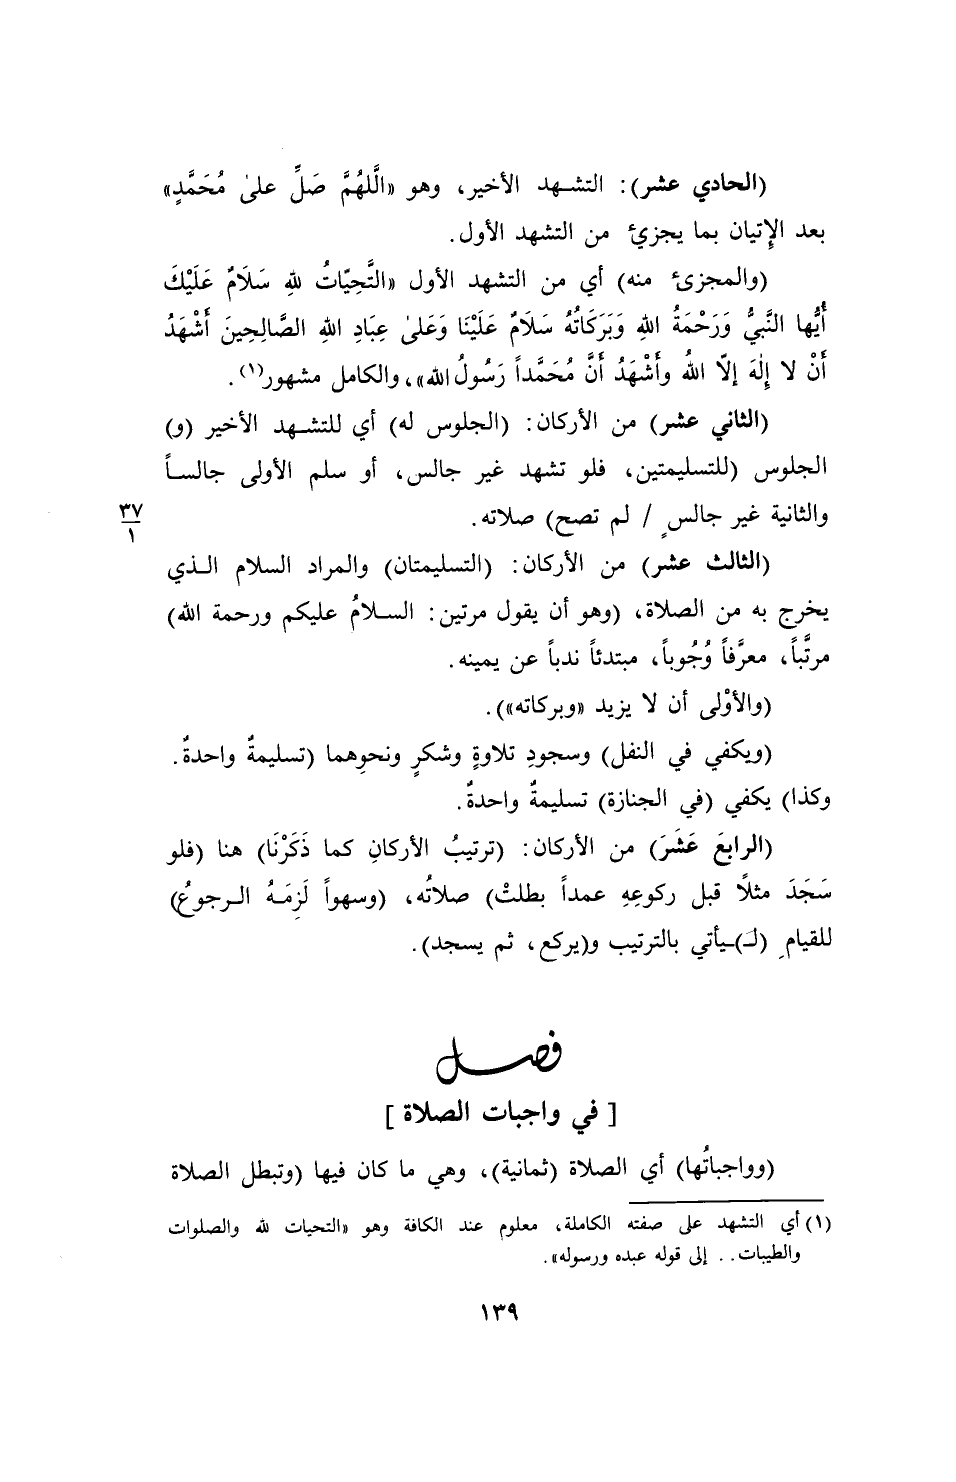 (الحادي عشر): التشهد الأخير، وهو «الَّلهُمَّ صَلِّ علىٰ مُحَمَّدٍ»
بعد الإِتيان بما يجزئ من التشهد الأول.
(والمجزئ منه) أي من التشهد الأول «التَّحِيّاتُ للهِ سَلَامٌ عَلَيْكَ
أَيُّها النَّبيُّ وَرَحْمَةُ اللهِ وَبَرَكَاتُهُ سَلَامٌ عَلَيْنَا وَعَلىٰ عِبَادِ اللهِ الصَّالِحِينَ أَشْهَدُ
أَنْ لا إِلٰهَ إلّا اللهُ وأَشْهَدُ أَنَّ مُحَمَّداً رَسُولُ الله»، والكامل مشهور(١).
(الثاني عشر) من الأركان: (الجلوس له) أي للتشهد الأخير (و)
الجلوس (للتسليمتين، فلو تشهد غير جالس، أو سلم الأولى جالساً
والثانية غير جالسٍ / لم تصح) صلاته.
٣٧
١
(الثالث عشر) من الأركان: (التسليمتان) والمراد السلام الذي
يخرج به من الصلاة، (وهو أن يقول مرتين: السلامُ عليكم ورحمة الله)
مرتَّباً، معرَّفاً وُجُوباً، مبتدئاً ندباً عن يمينه.
(والأوْلى أن لا يزيد «وبركاته»).
(ويكفي في النفل) وسجودِ تلاوةٍ وشكرٍ ونحوِهما (تسليمةٌ واحدةٌ.
وكذا) يكفي (في الجنازة) تسليمةٌ واحدةٌ.
(الرابعَ عَشَرَ) من الأركان: (ترتيبُ الأركانِ كما ذَكَرْنَا) هنا (فلو
سَجَدَ مثلًا قبل ركوعِهِ عمداً بطلتْ) صلاتُه، (وسهواً لَزِمَهُ الرجوعُ)
للقيامِ (لَـ)ـيأتي بالترتيب و(يركع، ثم يسجد).
فصل
[ في واجبات الصلاة ]
(وواجباتُها) أي الصلاة (ثمانية)، وهي ما كان فيها (وتبطل الصلاة
(١) أي التشهد على صفته الكاملة، معلوم عند الكافة وهو «التحيات لله والصلوات
والطيبات.. إلى قوله عبده ورسوله».
١٣٩